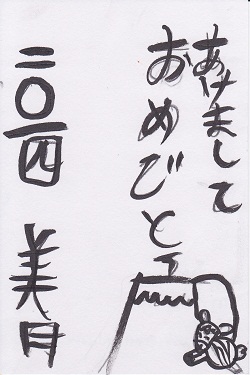 あけまして
おめでとう
二〇一四 美月